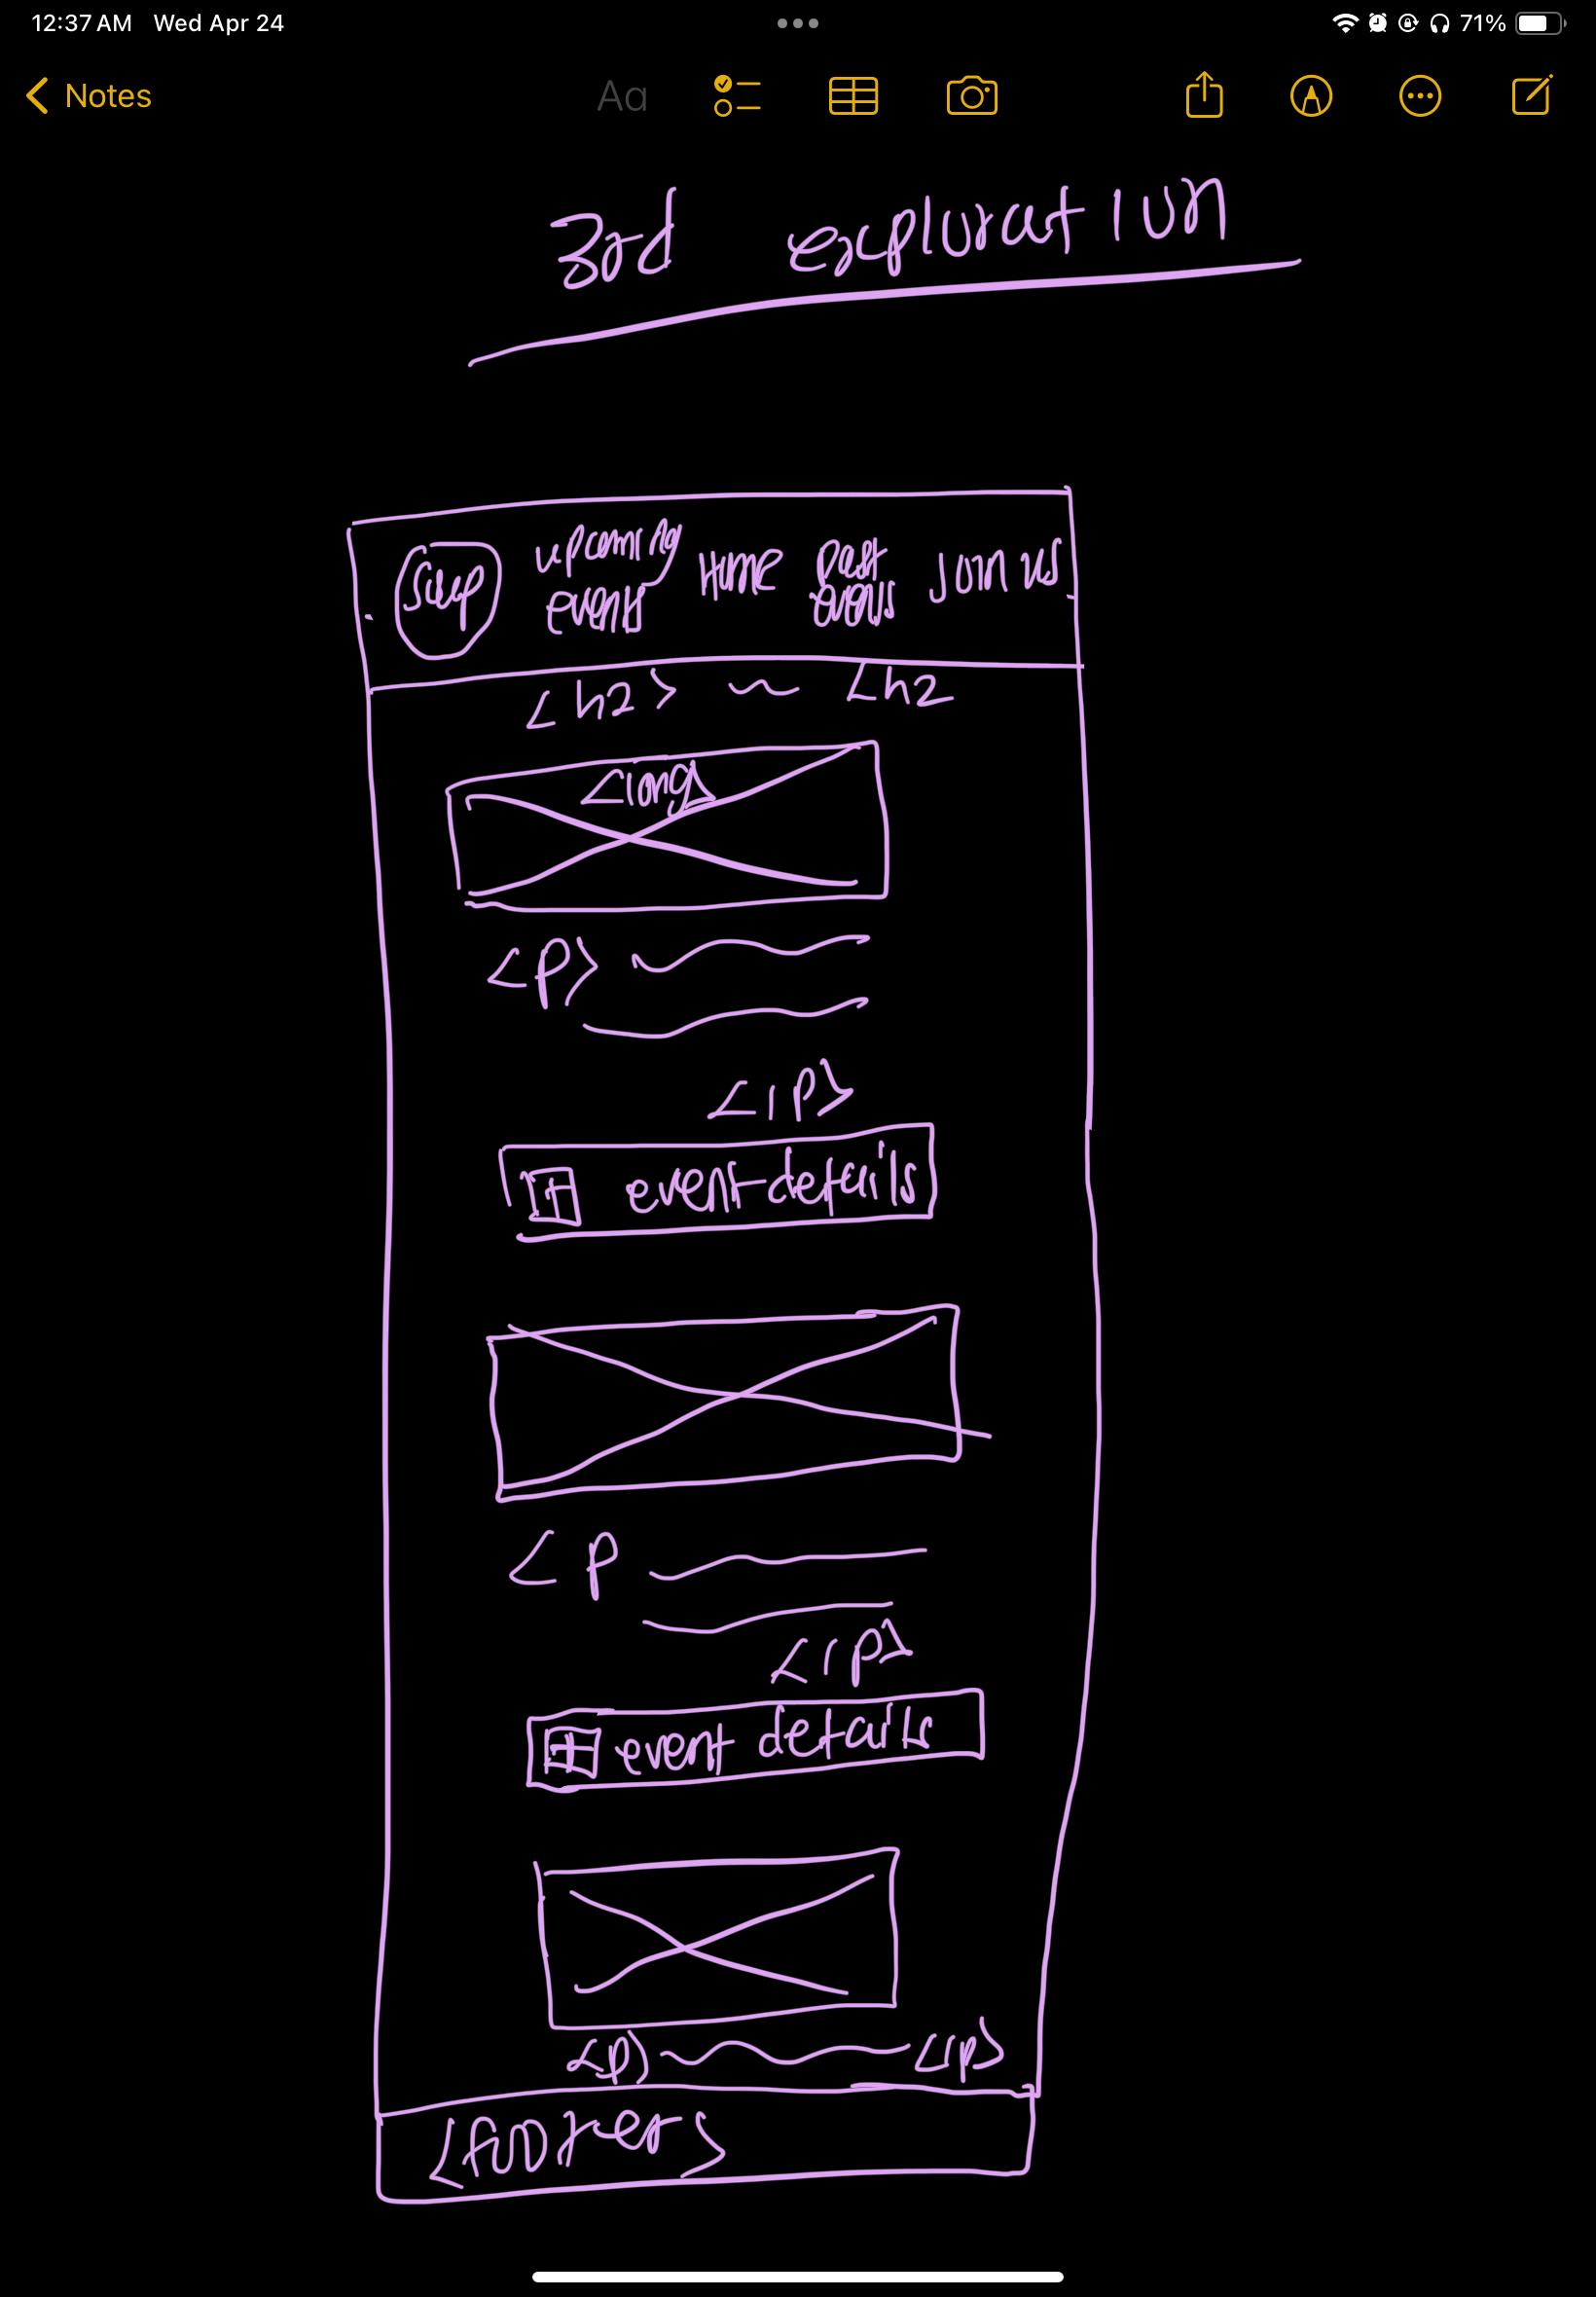 12:37 AM Wed Apr 24
71%
Notes
Aa
3rd exploration
upcoming events Home past events Join us
<h2> <h2
<img>
<p>
</p>
event details
<p
</p>
event details
<p> </p>
<footer>